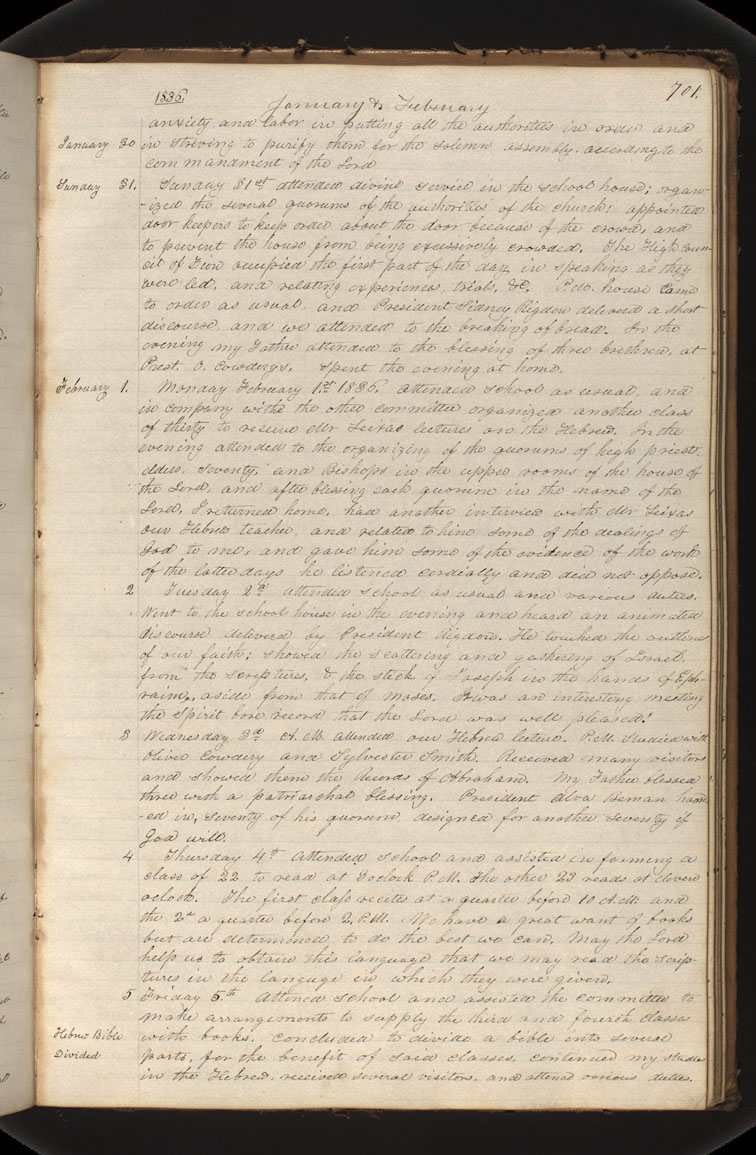 1836.
701.
January & February
anxiety and labor in putting all the authorities in order and
January 30 in striving to purify them for the solemn assembly, according to the
commandment of the Lord
Sunday 31. Sunday 31st attended divine service in the school house; organ-
-ized the several quorums of the authorities of the church; appointed
door keepers to keep order about the door because of the crowd, and
to prevent the house from being excessively crowded. The High Coun-
cil of Zion occupied the first part of the day, in speaking as they
were led, and relating experiences, trials, &c. P.M. house came
to order as usual, and President Sidney Rigdon delivered a short
discourse, and we attended to the breaking of bread. In the
evening my Father attended to the blessing of three brethren, at
Prest. O. Cowderys. Spent the evening at home.
February 1. Monday February 1st 1836. attended school as usual, and
in company with the other committee organized another class
of thirty to receive Mr Seixas lectures on the Hebrew. In the
evening attended to the organizing of the quorums of high priests,
elders, Seventy, and Bishops in the upper rooms of the house of
the Lord, and after blessing each quorum in the name of the
Lord, I returned home, had another interview with Mr Seixas
our Hebrew teacher, and related to him some of the dealings of
God to me, and gave him some of the evidence of the work
of the latter days he listened cordially and did not oppose.
2 Tuesday 2d attended School as usual and various duties.
Went to the school house in the evening and heard an animated
discourse delivered by President Rigdon. He touched the outlines
of our faith; showed the scattering and gathering of Israel
from the scriptures, & the stick of Joseph in the hands of Eph-
raim, aside from that of Moses. It was an interesting meeting
the Spirit bore record that the Lord was well pleased!
3 Wednesday 3d A.M. attended our Hebrew lecture. P.M. Studied with
Oliver Cowdery and Sylvester Smith. Received many visitors
and showed them the Records of Abraham. My Father blessed
three with a patriarchal blessing. President Alva Beman hand-
-ed in, seventy of his quorum, designed for another Seventy if
God will.
4 Thursday 4th attended School and assisted in forming a
class of 22 to read at 3 oclock P.M. the other 23 reads at eleven
oclock. The first class recites at a quarter before 10 A.M. and
the 2d a quarter before 2, P.M. We have a great want of books
but are determined to do the best we can. May the Lord
help us to obtain this language that we may read the scrip-
tures in the language in which they were given.
5 Friday 5th Attened school and assisted the committee to
make arrangements to supply the third and fourth classes
Hebrew Bible with books. concluded to divide a bible into several
Divided parts, for the benefit of said classes. continued my studies
in the Hebrew, received several visitors, and attened various duties.